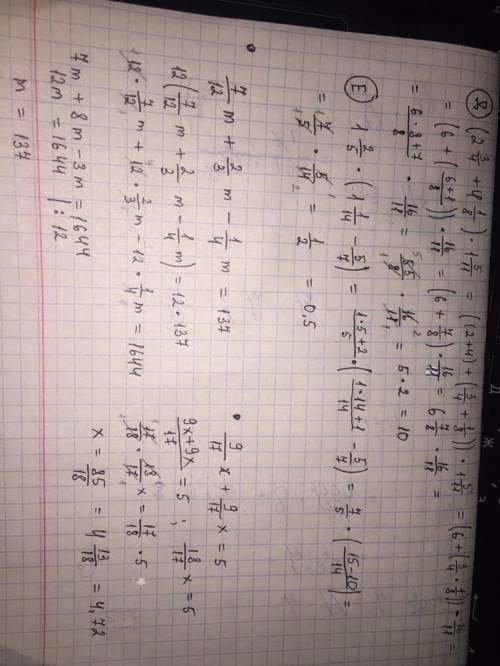 Д (2 3/4 + 4 1/8) · 1 5/11 = ((2+4) + (3/4 + 1/8)) · 1 5/11 = (6 + (3/4 · 1/8)) · 16/11 =
= (6 + (6+1/8)) · 16/11 = (6 + 7/8) · 16/11 = 6 7/8 · 16/11 =
= 6·8+7/8 · 16/11 = 55/8 · 16/11 = 5 · 2 = 10
E 1 2/5 · (1 1/14 - 5/7) = 1·5+2/5 · (1·14+1/14 - 5/7) = 7/5 · (15-10/14) =
= 7/5 · 5/14 = 1/2 = 0,5
7/12 m + 2/3 m - 1/4 m = 137
12(7/12 m + 2/3 m - 1/4 m) = 12 · 137
12 · 7/12 m + 12 · 2/3 m - 12 · 1/4 m = 1644
7m + 8m - 3m = 1644
12m = 1644 | : 12
m = 137
9/17 x + 9/17 x = 5
9x+9x/17 = 5 ; 18/17 x = 5
17/18 · 18/17 x = 17/18 · 5
x = 85/18 = 4 13/18 = 4,72
Д
Ж